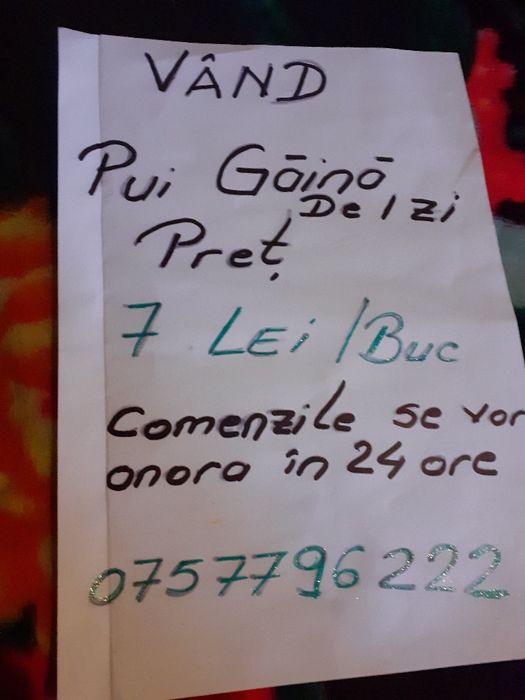 VÂND
Pui Găină
De 1 zi
Preț
7 Lei/Buc
Comenzile se vor
onora în 24 ore
0757796222